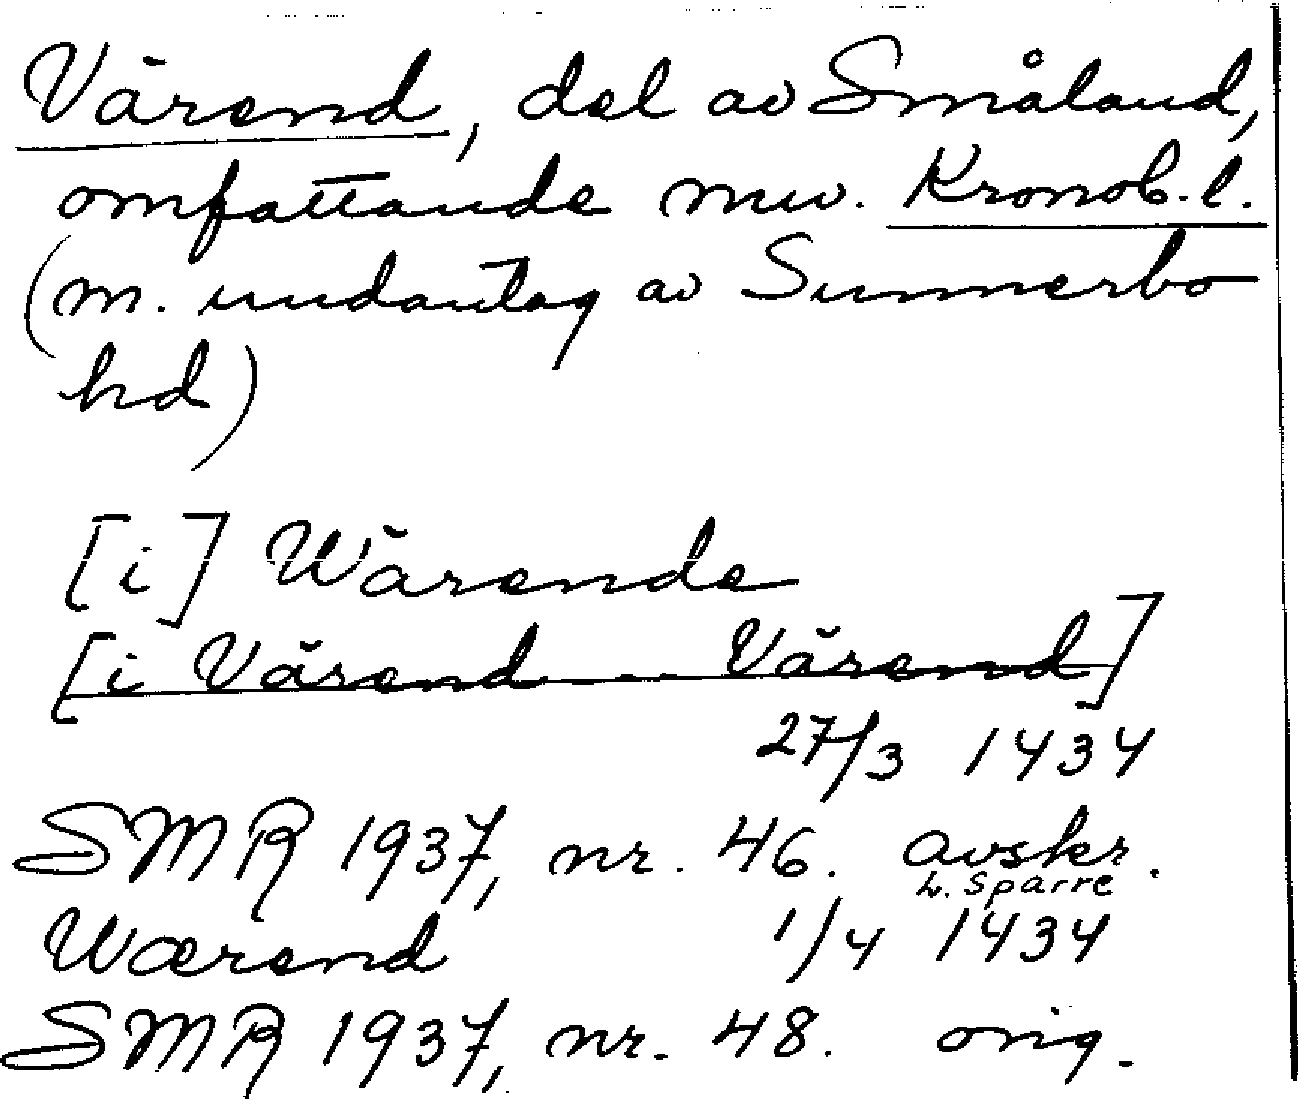 Värend, del av Småland,
omfattande nuv. Kronob. l.
(m. undantag av Sunnerbo
hd)
[i] Wärende
[i Värend - - - Värend]
27/3 1434
SMR 1937, nr. 46. avskr.
L. Sparre
Wærend 1/4 1434
SMR 1937, nr. 48. orig.